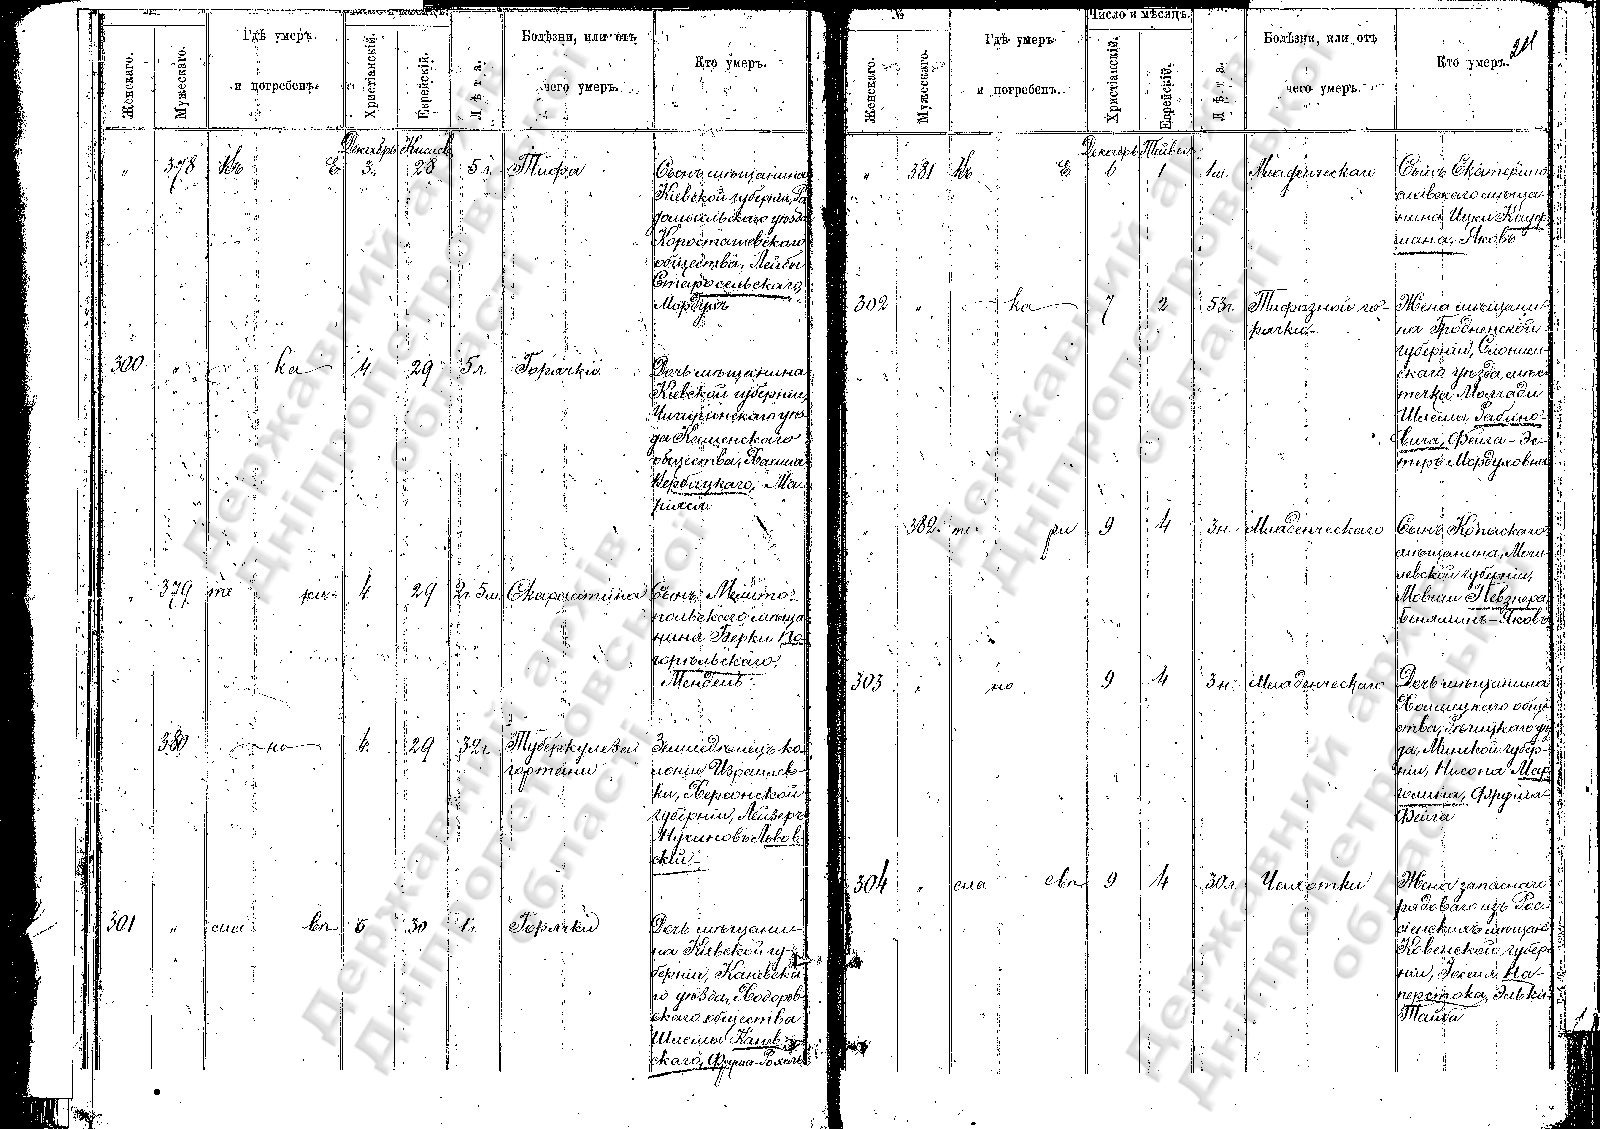 Женскаго.
Мужескаго.
Гдѣ умеръ
и погребенъ.
Христіанскій.
Еврейскій.
Лѣта.
Болѣзни, или отъ
чего умеръ.
Кто умеръ.
Декабрь Кислев
" 378 Въ Е 3 28 5 л. Тифа
Сынъ мѣщанина
Кіевской губерніи, Ра
домысльского уѣзда
Коростышевского
общества, Лейбы
Старосельскаго,
Мордухъ
300 " ка 4 29 5 л. Горячки
Дочь мѣщанина
Кіевской губерніи,
Чигиринского уѣз
да
общества,
Вербицкаго, Ма-
риася
" 379 те рин 4 29 2г. 5м. Скарлатина
Сынъ Мелито-
польского мѣща
нина Берки По-
горѣльского,
Мендель
380 но 4 29 32 г. Туберкулеза
гортани
Землед­ѣлецъ ко-
лоніи Израилев-
ки, Херсонской
губерніи, Лейзеръ
Львов-
скій
301 " сла вѣ 5 30 1 г. Горячки
Дочь мѣщани-
на Кіевской гу-
берніи, Каневска-
го уѣзда, Ходоров-
скаго общества
Шлемы Канев-
скаго, Фрума-Рохель
№
Число и мѣсяцъ.
Женскаго.
Мужескаго.
Гдѣ умеръ
и погребенъ.
Христіанскій.
Еврейскій.
Лѣта.
Болѣзни, или отъ
чего умеръ.
Кто умеръ.
Декабрь Тейвес
" 381 Въ Е 6 1 1м. Младенческой
Сынъ Екатерино
славского мѣща-
нина Ицки Кауф
мана, Яковъ
302 " ка 7 2 53г. Тифозной го-
рячки
Жена мѣщани-
на Гродненской
губерніи, Слоним-
скаго уѣзда, мѣс
течка Молчади
Шлемы Рабино-
вича, Фейга-Эс-
тиръ Мордуховна
" 382 те ри 9 4 3н. Младенческаго
Сынъ Копыского
мѣщанина, Моги-
левской губерніи,
Мовши Невзнера,
Беняминъ-Яковъ
303 " но 9 4 3н. Младенческаго
Дочь мѣщанина
Холмецкаго обще
ства, Рѣчицкаго уѣз
да, Минской губер-
ніи, Нисона Мар
голина, Фрума-
Фейга
304 " сла вѣ 9 4 30л. Чахотки
Жена запаснаго
рядового изъ Рос-
сіенскихъ мѣщанъ
Ковенской губер
ніи, На-
перстока, Элька
Тайба
Державний архів
Дніпропетровської
області